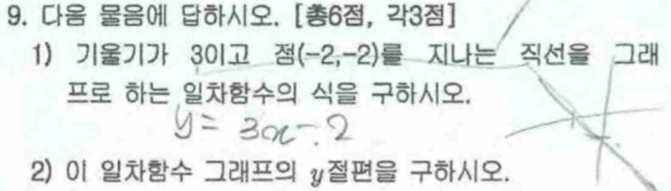 9. 다음 물음에 답하시오. [총6점, 각3점]
1) 기울기가 3이고 점(-2,-2)를 지나는 직선을 그래
프로 하는 일차함수의 식을 구하시오.
y = 3x - 2
2) 이 일차함수 그래프의 y절편을 구하시오.